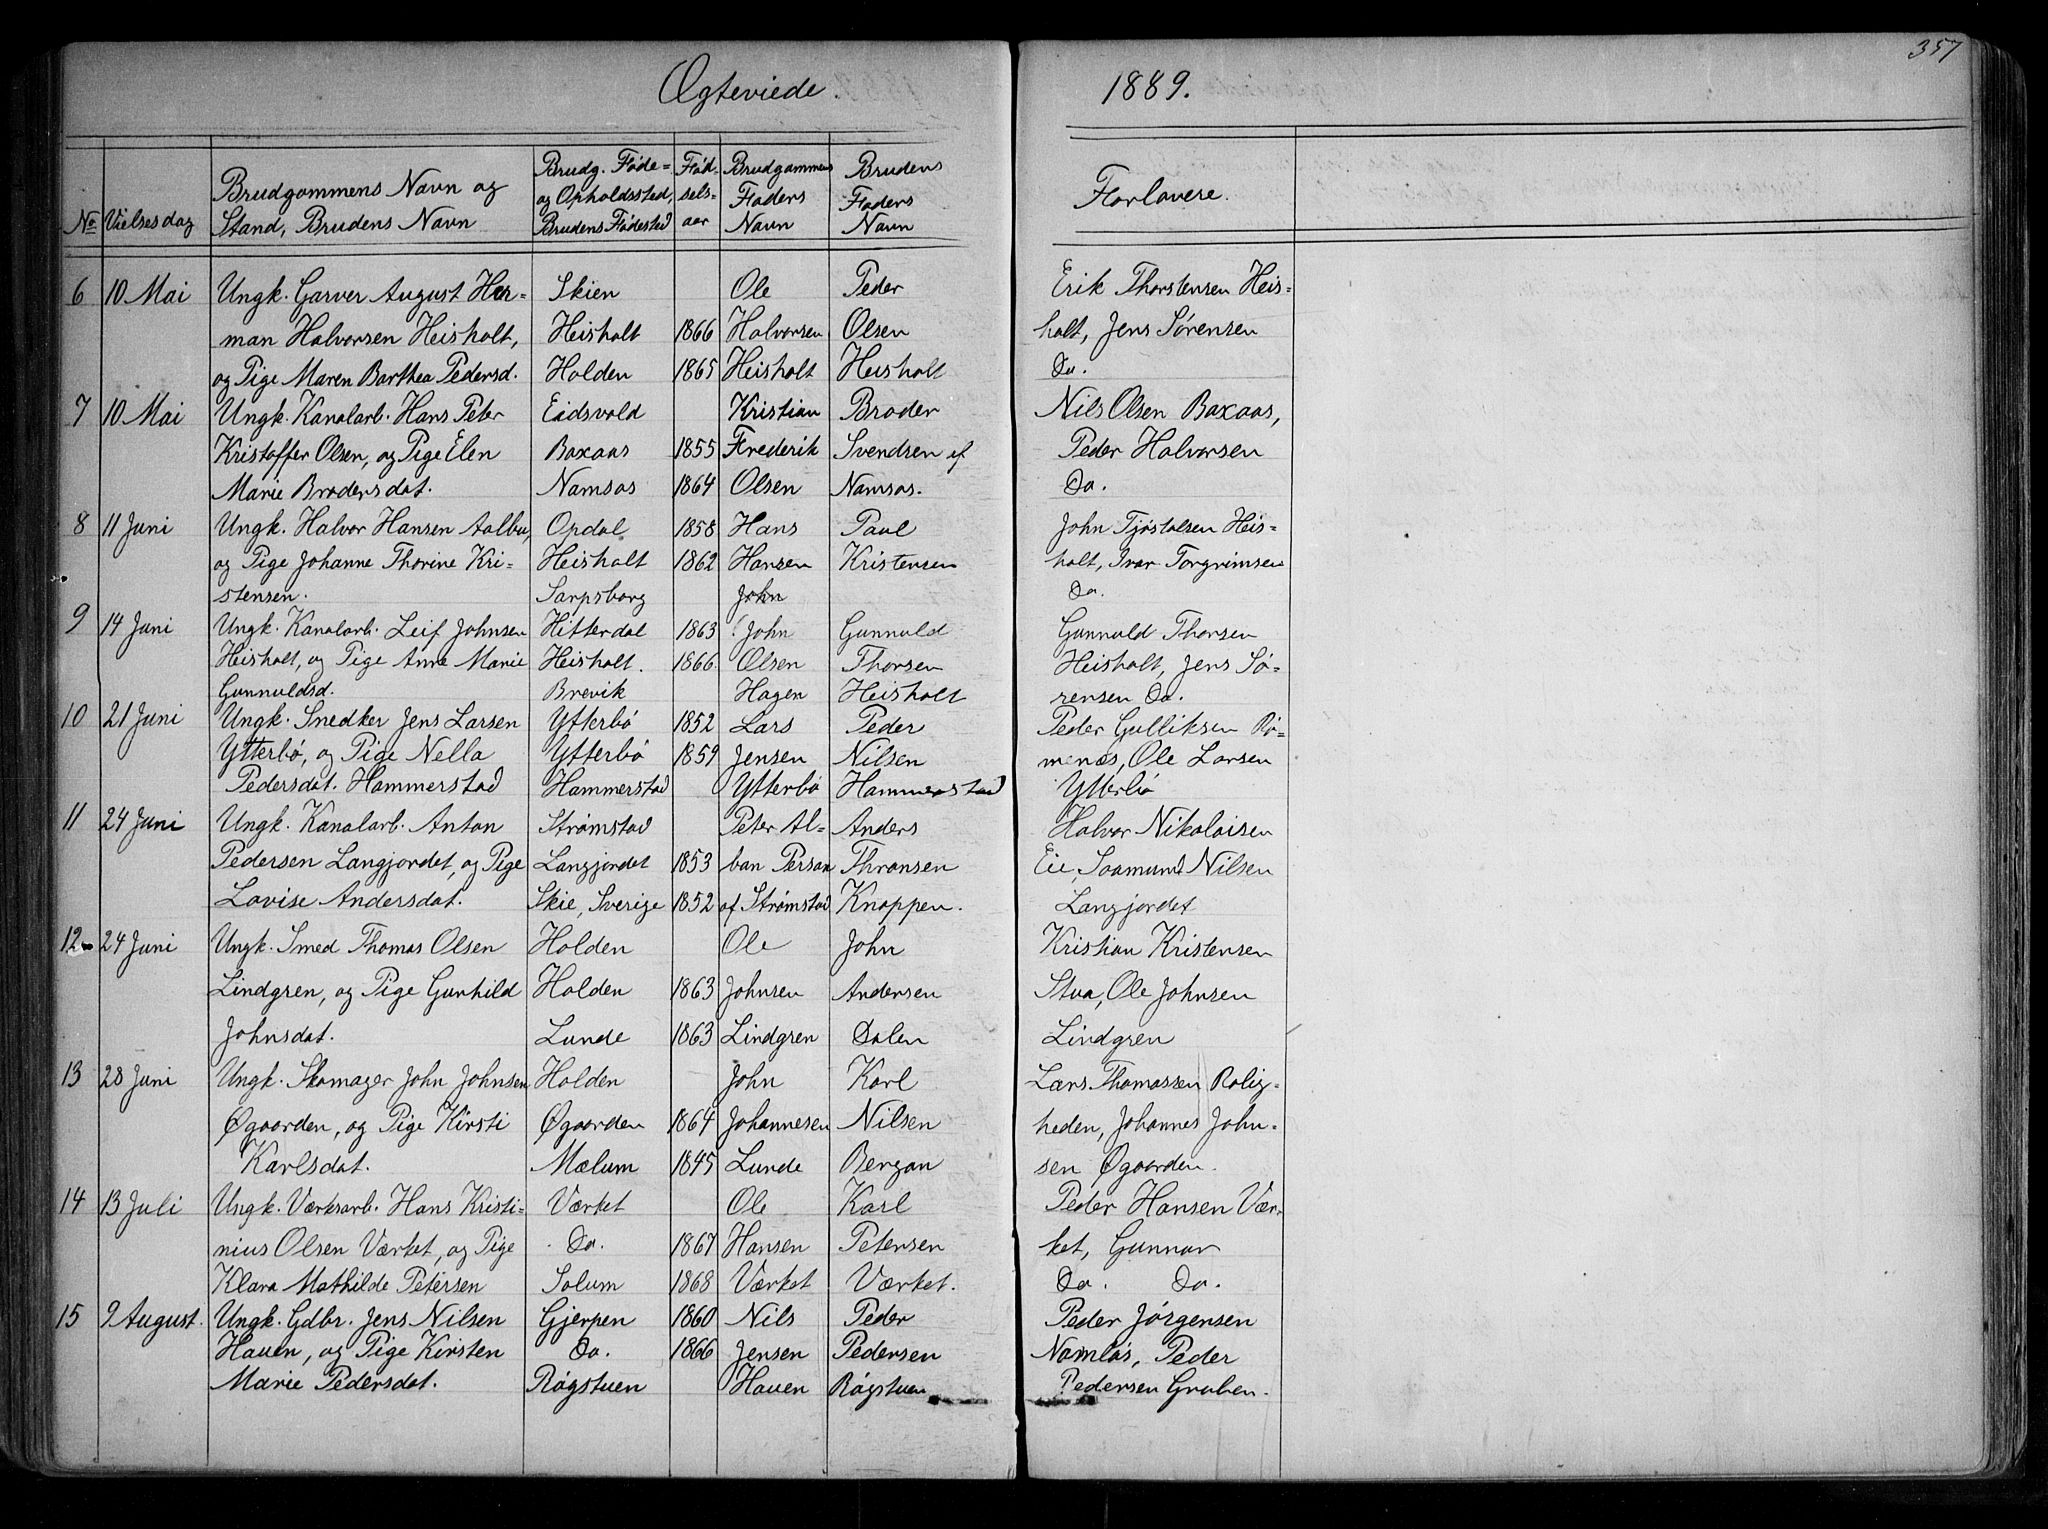 357
Ægteviede. 1889.
No Vielsesdag Brudgommens Navn og Stand, Brudens Navn Brudg. Føde- og Opholdssted, Brudens Fødested Fød- sels- aar Brudgommens Faders Navn Brudens Faders Navn Forlovere.
6 10 Mai Ungk. Garver August Her- Skien Ole Peder Erik Thorstensen Heis-
man Halvorsen Heisholt, Heisholt 1866 Halvorsen Olsen holt, Jens Sørensen
og Pige Maren Barthea Pedersd. Holden 1865 Heisholt Heisholt Do.
7 10 Mai Ungk. Kanalarb. Hans Peter Eidsvold Kristian Broder Nils Olsen Baxaas,
Kristoffer Olsen, og Pige Elen Baxaas 1855 Frederik Svendsen af Peder Halvorsen
Marie Brodersdat. Namsos 1864 Olsen Namsos. Do.
8 11 Juni Ungk. Halvor Hansen Aalbu, Opdal 1858 Hans Paul John Tjøstolsen Heis-
og Pige Johanne Thorine Kri- Heisholt 1862 Hansen Kristensen holt, Ivar Torgrimsen
stensen. Sarpsborg John Do.
9 14 Juni Ungk. Kanalarb. Leif Johnsen Hitterdal 1863 John Gunnuld Gunnuld Thorsen
Heisholt, og Pige Anne Marie Heisholt. 1866. Olsen Thorsen Heisholt, Jens Sø-
Gunnuldsd. Brevik Hagen Heisholt rensen Do.
10 21 Juni Ungk. Snedker Jens Larsen Ytterbø 1852 Lars Peder Peder Gulliksen Rø-
Ytterbø, og Pige Nella Ytterbø 1859 Jensen Nilsen menæs, Ole Larsen
Pedersdat. Hammerstad Hammerstad Ytterbø Hammerstad Ytterbø
11 24 Juni Ungk. Kanalarb. Anton Strømstad Peter Al- Anders Halvor Nikolaisen
Pedersen Langjordet, og Pige Langjordet 1853 ban Persan Thronsen Eie, Saamund Nilsen
Lovise Andersdat. Skie, Sverige 1852 af Strømstad Knappen. Langjordet
12 24 Juni Ungk. Smed Thomas Olsen Holden Ole John Kristian Kristensen
Lindgren, og Pige Gunhild Holden 1863 Johnsen Andersen Stua, Ole Johnsen
Johnsdat. Lunde 1863 Lindgren Dalen Lindgren
13 28 Juni Ungk. Skomager John Johnsen Holden John Karl Lars Thomassen Rolig-
Øgaarden, og Pige Kirsti Øgaarden 1864 Johannesen Nilsen heden, Johannes John-
Karlsdat. Mælum 1845 Lunde Bergan sen Øgaarden.
14 13 Juli Ungk. Værksarb. Hans Kristi- Værket Ole Karl Peder Hansen Vær-
nius Olsen Værket, og Pige Do. 1867 Hansen Petersen ket, Gunnar
Klara Mathilde Petersen Solum 1868 Værket Værket. Do. Do.
15 9 August. Ungk. Gdbr. Jens Nilsen Gjerpen 1860 Nils Peder Peder Jørgensen
Hauen, og Pige Kirsten Do. 1866 Jensen Pedersen Namløs, Peder
Marie Pedersdat. Røgstuen Hauen Røgstuen Pedersen Gruben.